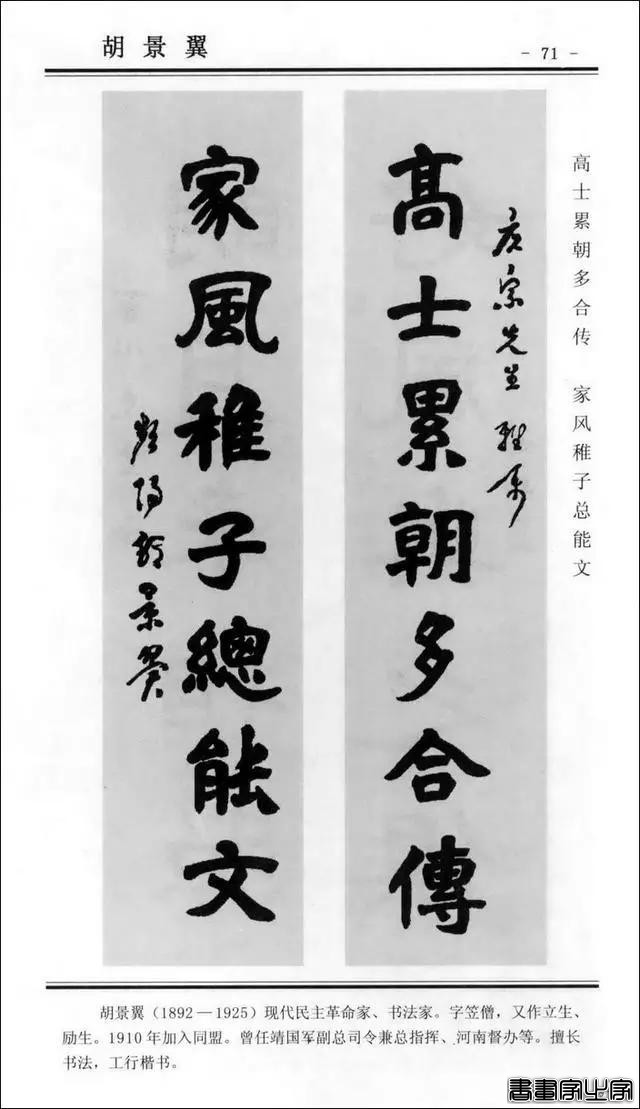 胡景翼
- 71 -
高士累朝多合传 家风稚子总能文
先生雅属
高士累朝多合傳
家風稚子總能文
景翼
胡景翼（1892—1925）现代民主革命家、书法家。字笠僧，又作立生、
励生。1910年加入同盟。曾任靖国军副总司令兼总指挥、河南督办等。擅长
书法，工行楷书。
書畫家之家